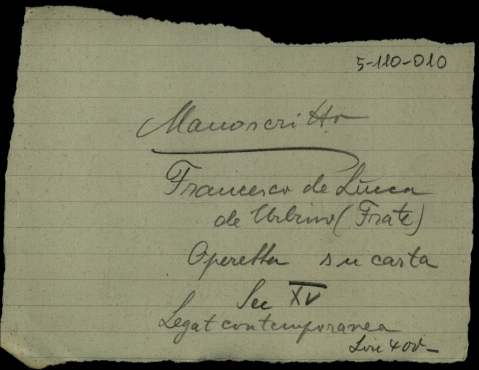 5-110-010
Manoscritto
Francesco de Lucca
de Urbino (Frate)
Operetta su carta
Sec XV
Legat contemporanea
Lire 400-